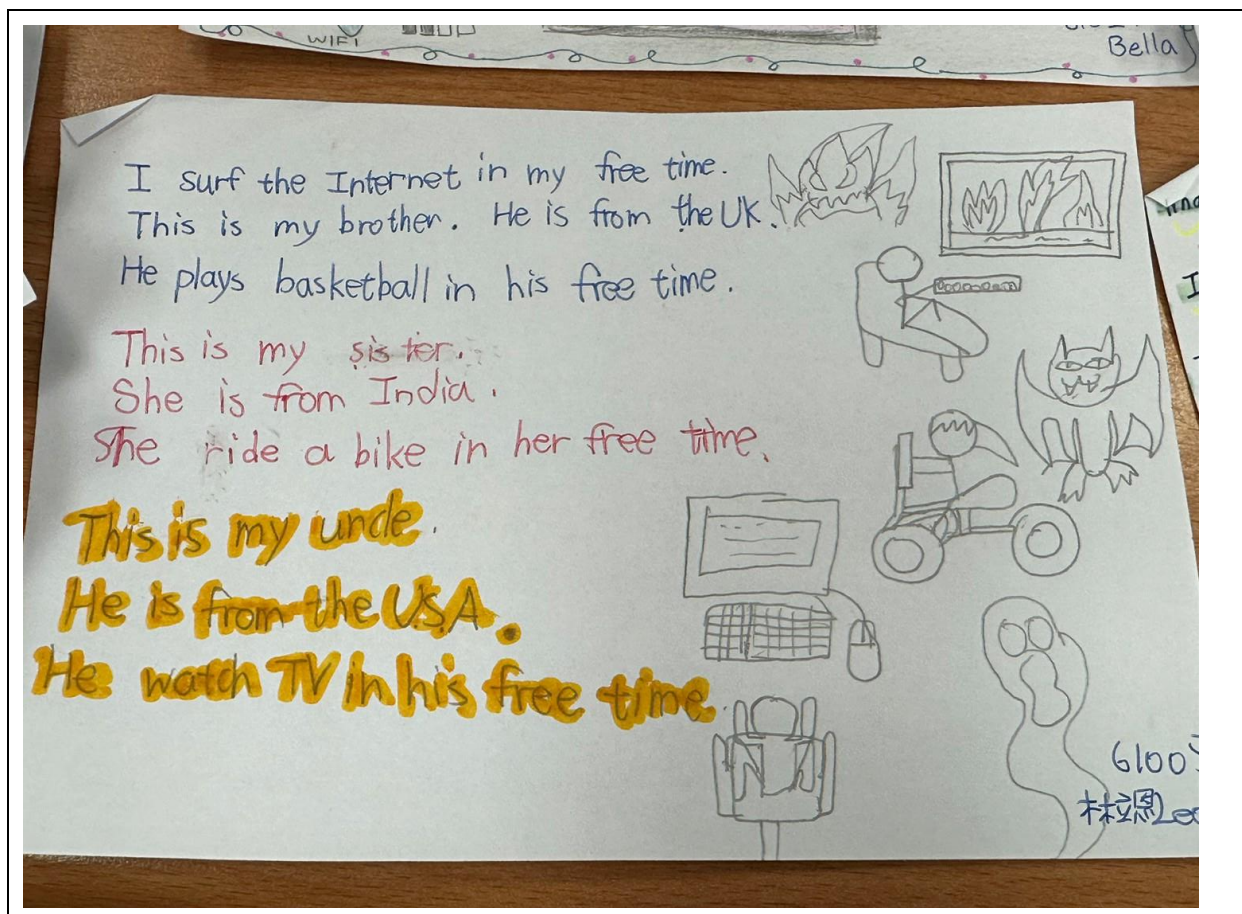 WIFI
Bella
I surf the Internet in my free time.
This is my brother. He is from the UK.
He plays basketball in his free time.
This is my sister.
She is from India.
She ride a bike in her free time.
This is my uncle.
He is from the USA.
He watch TV in his free time.
6100
林立恩